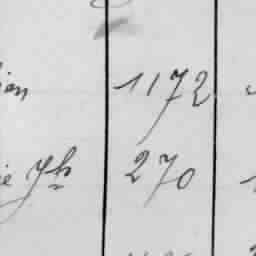 ien 1172
ie Jh 270